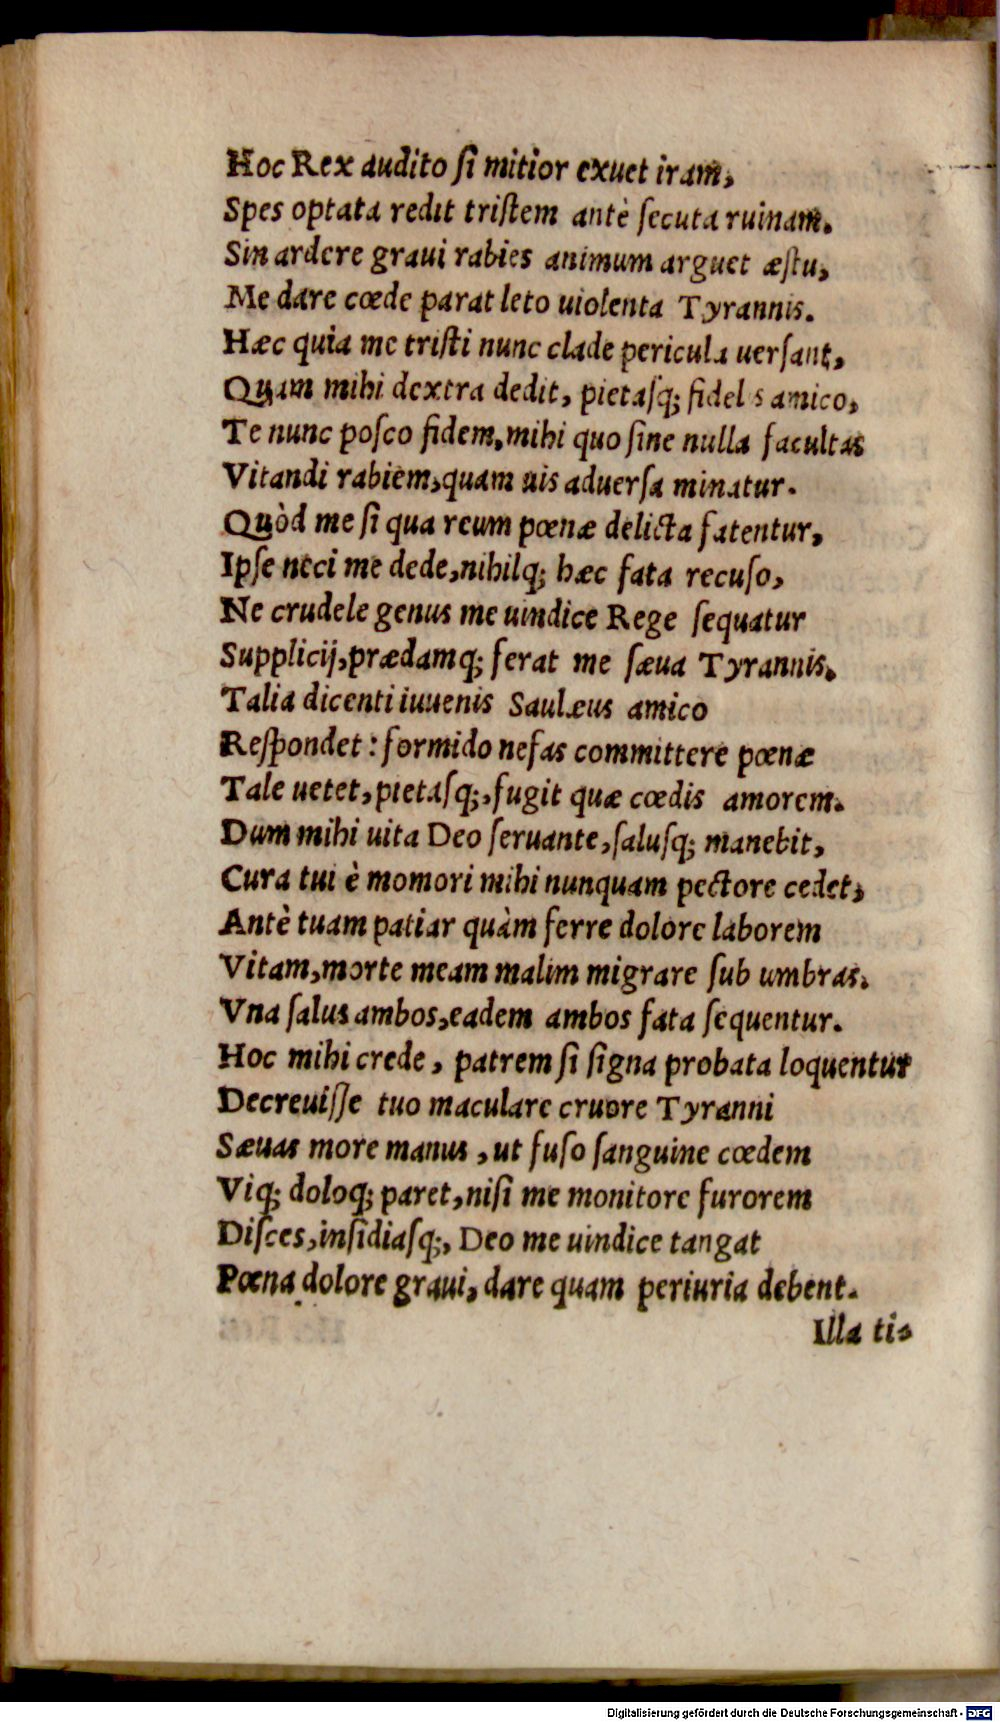 Hoc Rex audito ſi mitior exuet iram,
Spes optata redit triſtem antè ſecuta ruinam.
Sin ardere graui rabies animum arguet æſtu,
Me dare cœde parat leto uiolenta Tyrannis.
Hæc quia me triſti nunc clade pericula uerſant,
Quam mihi dextra dedit, pietaſq; fidel s amico,
Te nunc poſco fidem, mihi quo ſine nulla facultas
Vitandi rabiem, quam uis aduerſa minatur.
Quòd me ſi qua reum pœnæ delicta fatentur,
Ipſe neci me dede, nihilq; hæc fata recuſo,
Ne crudele genus me uindice Rege ſequatur
Supplicij, prædamq; ferat me ſæua Tyrannis.
Talia dicenti iuuenis Saulæus amico
Reſpondet: formido nefas committere pœnæ
Tale uetet, pietaſq;, fugit quæ cœdis amorem.
Dum mihi uita Deo ſeruante, ſaluſq; manebit,
Cura tui è momori mihi nunquam pectore cedet,
Antè tuam patiar quàm ferre dolore laborem
Vitam, morte meam malim migrare ſub umbras.
Vna ſalus ambos, eadem ambos fata ſequentur.
Hoc mihi crede, patrem ſi ſigna probata loquentur
Decreuiſſe tuo maculare cruore Tyranni
Sæuas more manus, ut fuſo ſanguine cœdem
Viq; doloq; paret, niſi me monitore furorem
Diſces, inſidiaſq;, Deo me uindice tangat
Pœna dolore graui, dare quam periuria debent.
Illa ti-
Digitalisierung gefördert durch die Deutsche Forschungsgemeinschaft - DFG